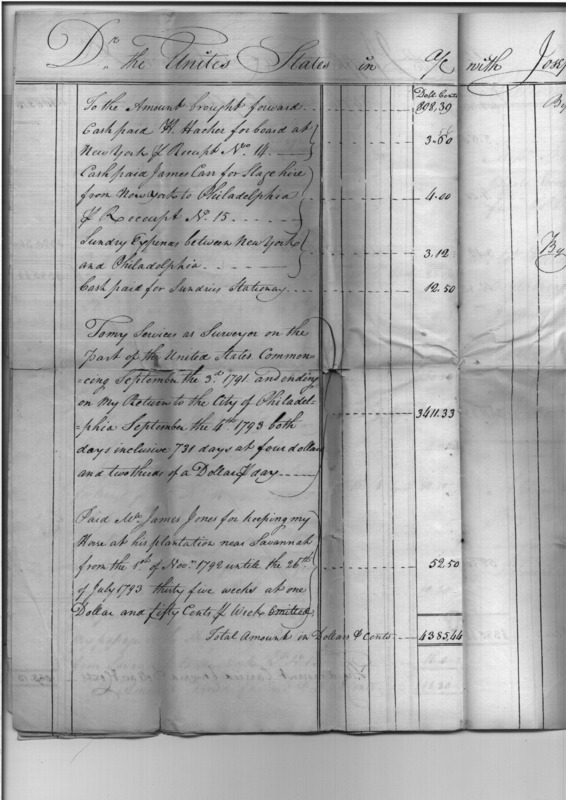 Dr. the United States in a/c with Josep
Dolls Cents
To the Amount brought forward 898,39
By
Cash paid H. Hacher for board at
New York ⅌ Receipt No. 14. 3.50
Cash paid James Carr for Stage hire
from New York to Philadelphia 4.00
⅌ Receeipt No. 15
Sundry Expenses between New York 3.12
and Philadelphia
By
Cash paid for Sundries Stationary 12.50
To my Services as Surveyor on the
part of the United States Commen-
=cing September the 3rd. 1791. and ending
on my Return to the City of Philadel-
=phia September the 4th. 1793 both 3411.33
days inclusive 731 days at four dollars
and two thirds of a Dollar ⅌ day
Paid Mr. James Jones for keeping my
Horse at his plantation near Savannah
from the 1st of Novr. 1792 untile the 26th 52.50
of July 1793 thirty five weeks at one
Dollar and fifty Cents ⅌ Week Omitted
Total Amount in Dollars & Cents 4385,44